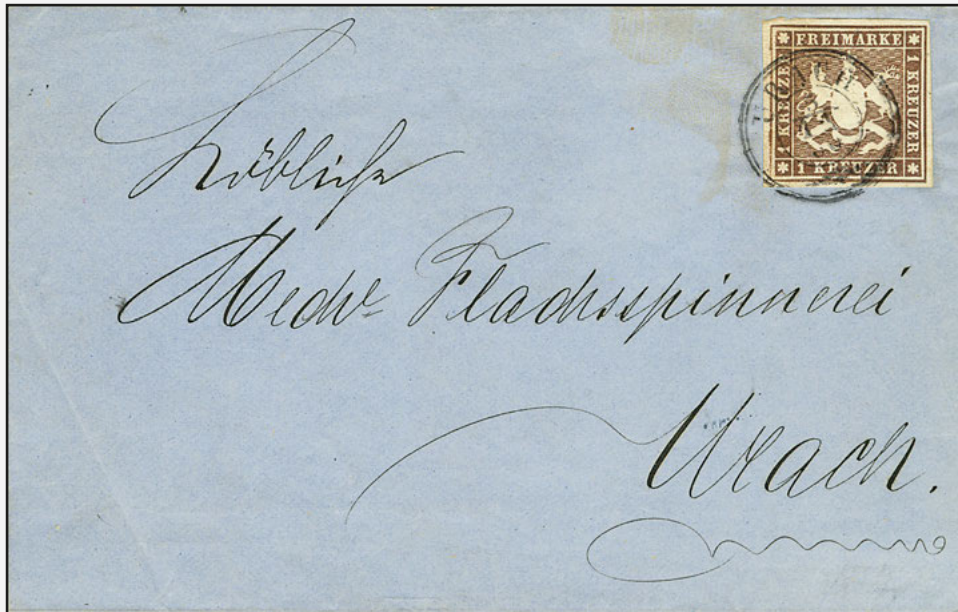 FREIMARKE
1 KREUZER
1 KREUZER
1 KREUZER
URACH
Löbliche
Mech^e Flachsspinnerei
Urach.